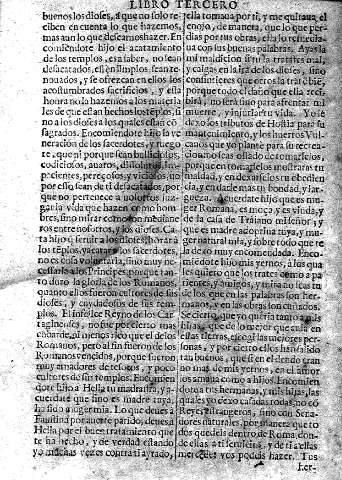 LIBRO TERCERO
buenos los dioses, a que no solo re-
ciben en cuenta lo que hazemos,
mas aun lo que desseamos hazer. En
comiendote hijo el acatamiento
de los templos, es a saber, no sean
desacatados, estén limpios, sean re-
nouados, y se ofrezcan en ellos los
acostumbrados sacrificios, y esta
honra no la hazemos a los materia
les de que estan hechos los templos, si
no a los dioses a los quales estan co
sagrados. Encomiendote hijo la ve
neracion de los sacerdotes, y ruego
te, que ni porque sean bulliciosos,
codiciosos, auaros, dissolutos, im-
pacientes, pereçosos, y viciosos, no
por esso sean de ti desacatados, por
que no pertenece a nosotros juz-
gar la vida que hazen como hom-
bres, sino mirar como son mediane
ros entre nosotros, y los dioses. Ca
ta hijo que seruir a los dioses, honrar a
los templos, y acatar a los sacerdotes,
no es cosa voluntaria, sino muy ne-
cessaria a los Principes, porque tan-
to duro la gloria de los Romanos,
quanto ellos fueron cultores de sus
dioses, y cuydadosos de sus tem-
plos. El infelice Reyno de los Car-
tagineses, no fue por cierto mas
couarde, ni menos rico que el de los
Romanos, pero al fin fueron de los
Romanos vencidos, porque fueron
muy amadores de tesoros, y poco
cultores de sus templos. Encomien
dote hijo a Helia tu madrastra, y a-
cuerdate que sino es madre tuya,
ha sido muger mia. Lo que deues a
Faustina por auerte parido, deues a
Helia por el buen tratamiento que
te ha hecho, y de verdad estando
yo muchas vezes contra ti ayrado,
ella tornaua por ti, y me quitaua el
enojo, de manera, que lo que per-
dias por tus obras, ella lo remedia-
ua con sus buenas palabras. Ayas la
mi maldicion si tu la tratares mal,
y caygas en la ira de los dioses, sino
consintieres que otros la traten bie
porque todo el daño que ella reci-
birá, no sera sino para afrentar mi
muerte, y injuriar tu vida. Yo le
dexo los tributos de Hostia para su
mantenimiento, y los huertos Vul-
canos que yo planté para su recrea-
cion, no seas osado de tomarselos,
porque en tomarselos mostraras tu
maldad, y en dexarselos tu obedien
cia, y en darle mas tu bondad, y lar-
gueza. Acuerdate hijo que es mu-
ger Romana, es moça y es viuda, y
de la casa de Trajano mi señor, y
que es madre adoptiua tuya, y mu-
ger natural mia, y sobre todo que te
la dexo muy encomendada. Enco-
miendote hijo mis yernos, a los qua
les quiero que los trates como a pa-
rientes, y amigos, y mira no seas tu
de los que en las palabras son her-
manos, y en las obras son cuñados.
Se cierto, que yo queria tanto a mis
hijas, que de lo mejor que auia en
las tierras, escogi las mejores perso-
nas, y por cierto ellos han salido
tan buenos, que si en el deudo eran
no mas de mis yernos, en el amor
los amaua como a hijos. Encomien
dote a tus hermanas, y mis hijas, las
quales yo dexo casadas todas, no cō
Reyes estrangeros, sino con Sena-
dores naturales, por manera que to
dos quedeis dentro de Roma, don-
de ellas a ti seruicios, y tu a ellas
mercedes vos podais hazer. Tus
her-